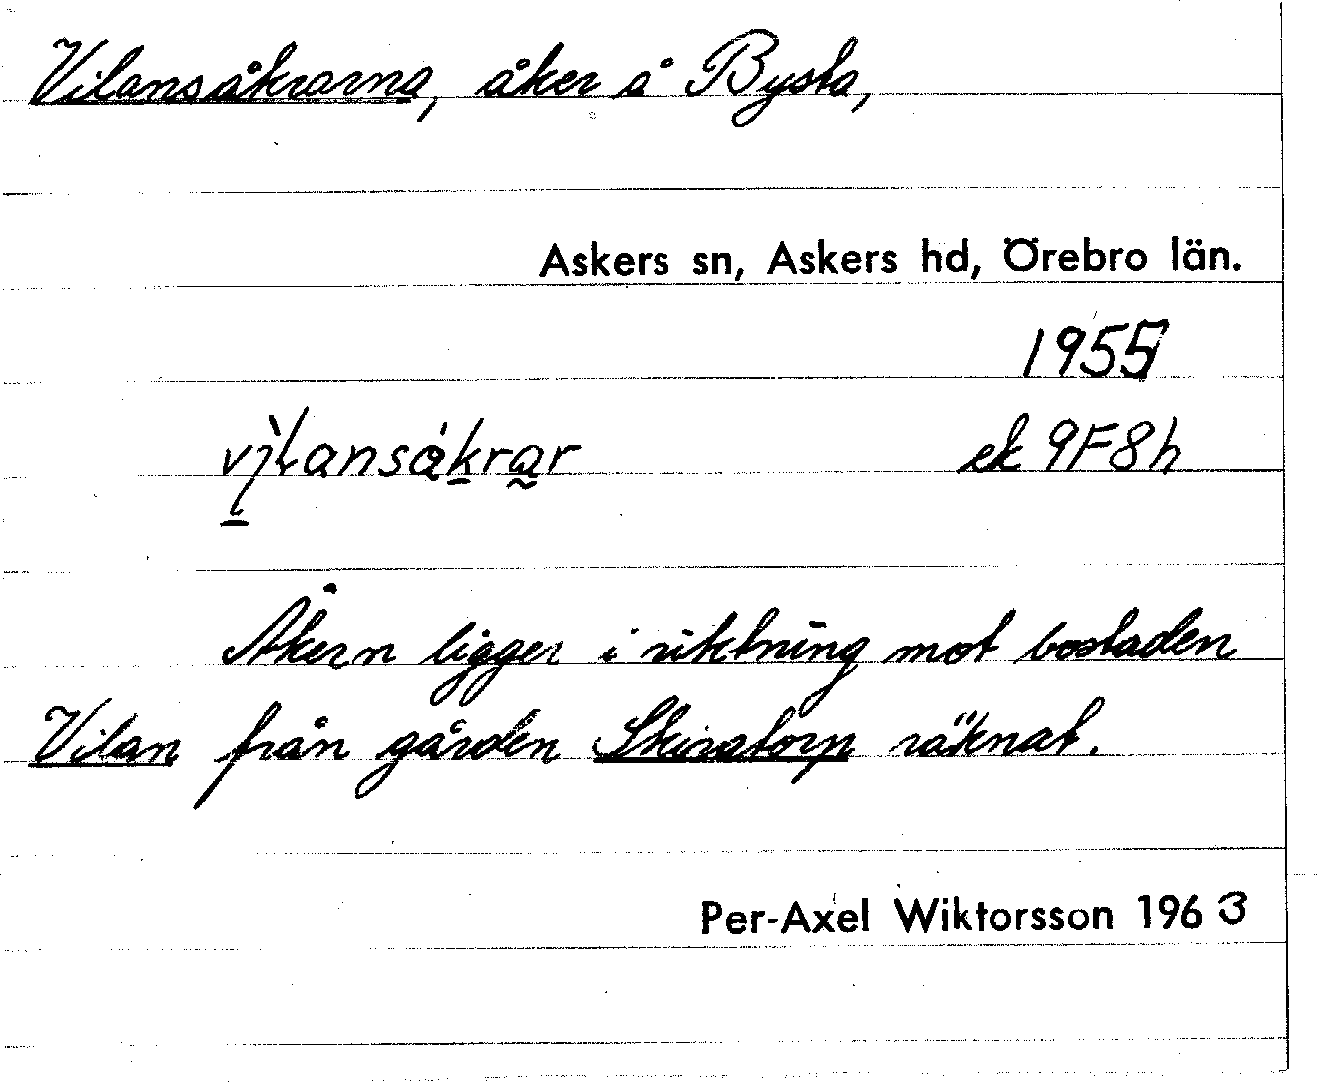 Vilansåkrarna, åker å Bysta,
Askers sn, Askers hd, Örebro län.
1955
vilansåkrar ek 9F8h
Åkern ligger i riktning mot bostaden
Vilan från gården Skiratorp räknat.
Per-Axel Wiktorsson 1963